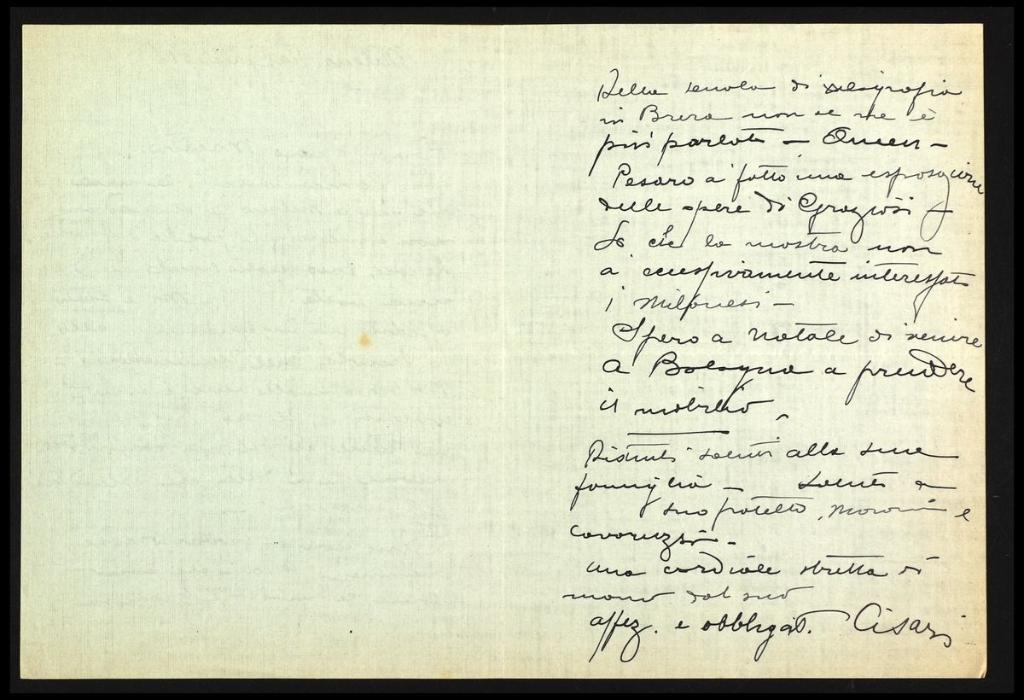 Della scuola di xilografia
in Brera non se ne è
più parlato —
Pesaro a fatto una esposizione
delle opere di Graziosi —
So che la mostra non
a eccessivamente interessato
i Milanesi —
Spero a Natale di venire
a Bologna a prendere
il mobilio.
Distinti saluti alla sua
famiglia — saluti a
suo protetto, e
una cordiale stretta di
mano dal suo
affez. e obbligat. Cisari